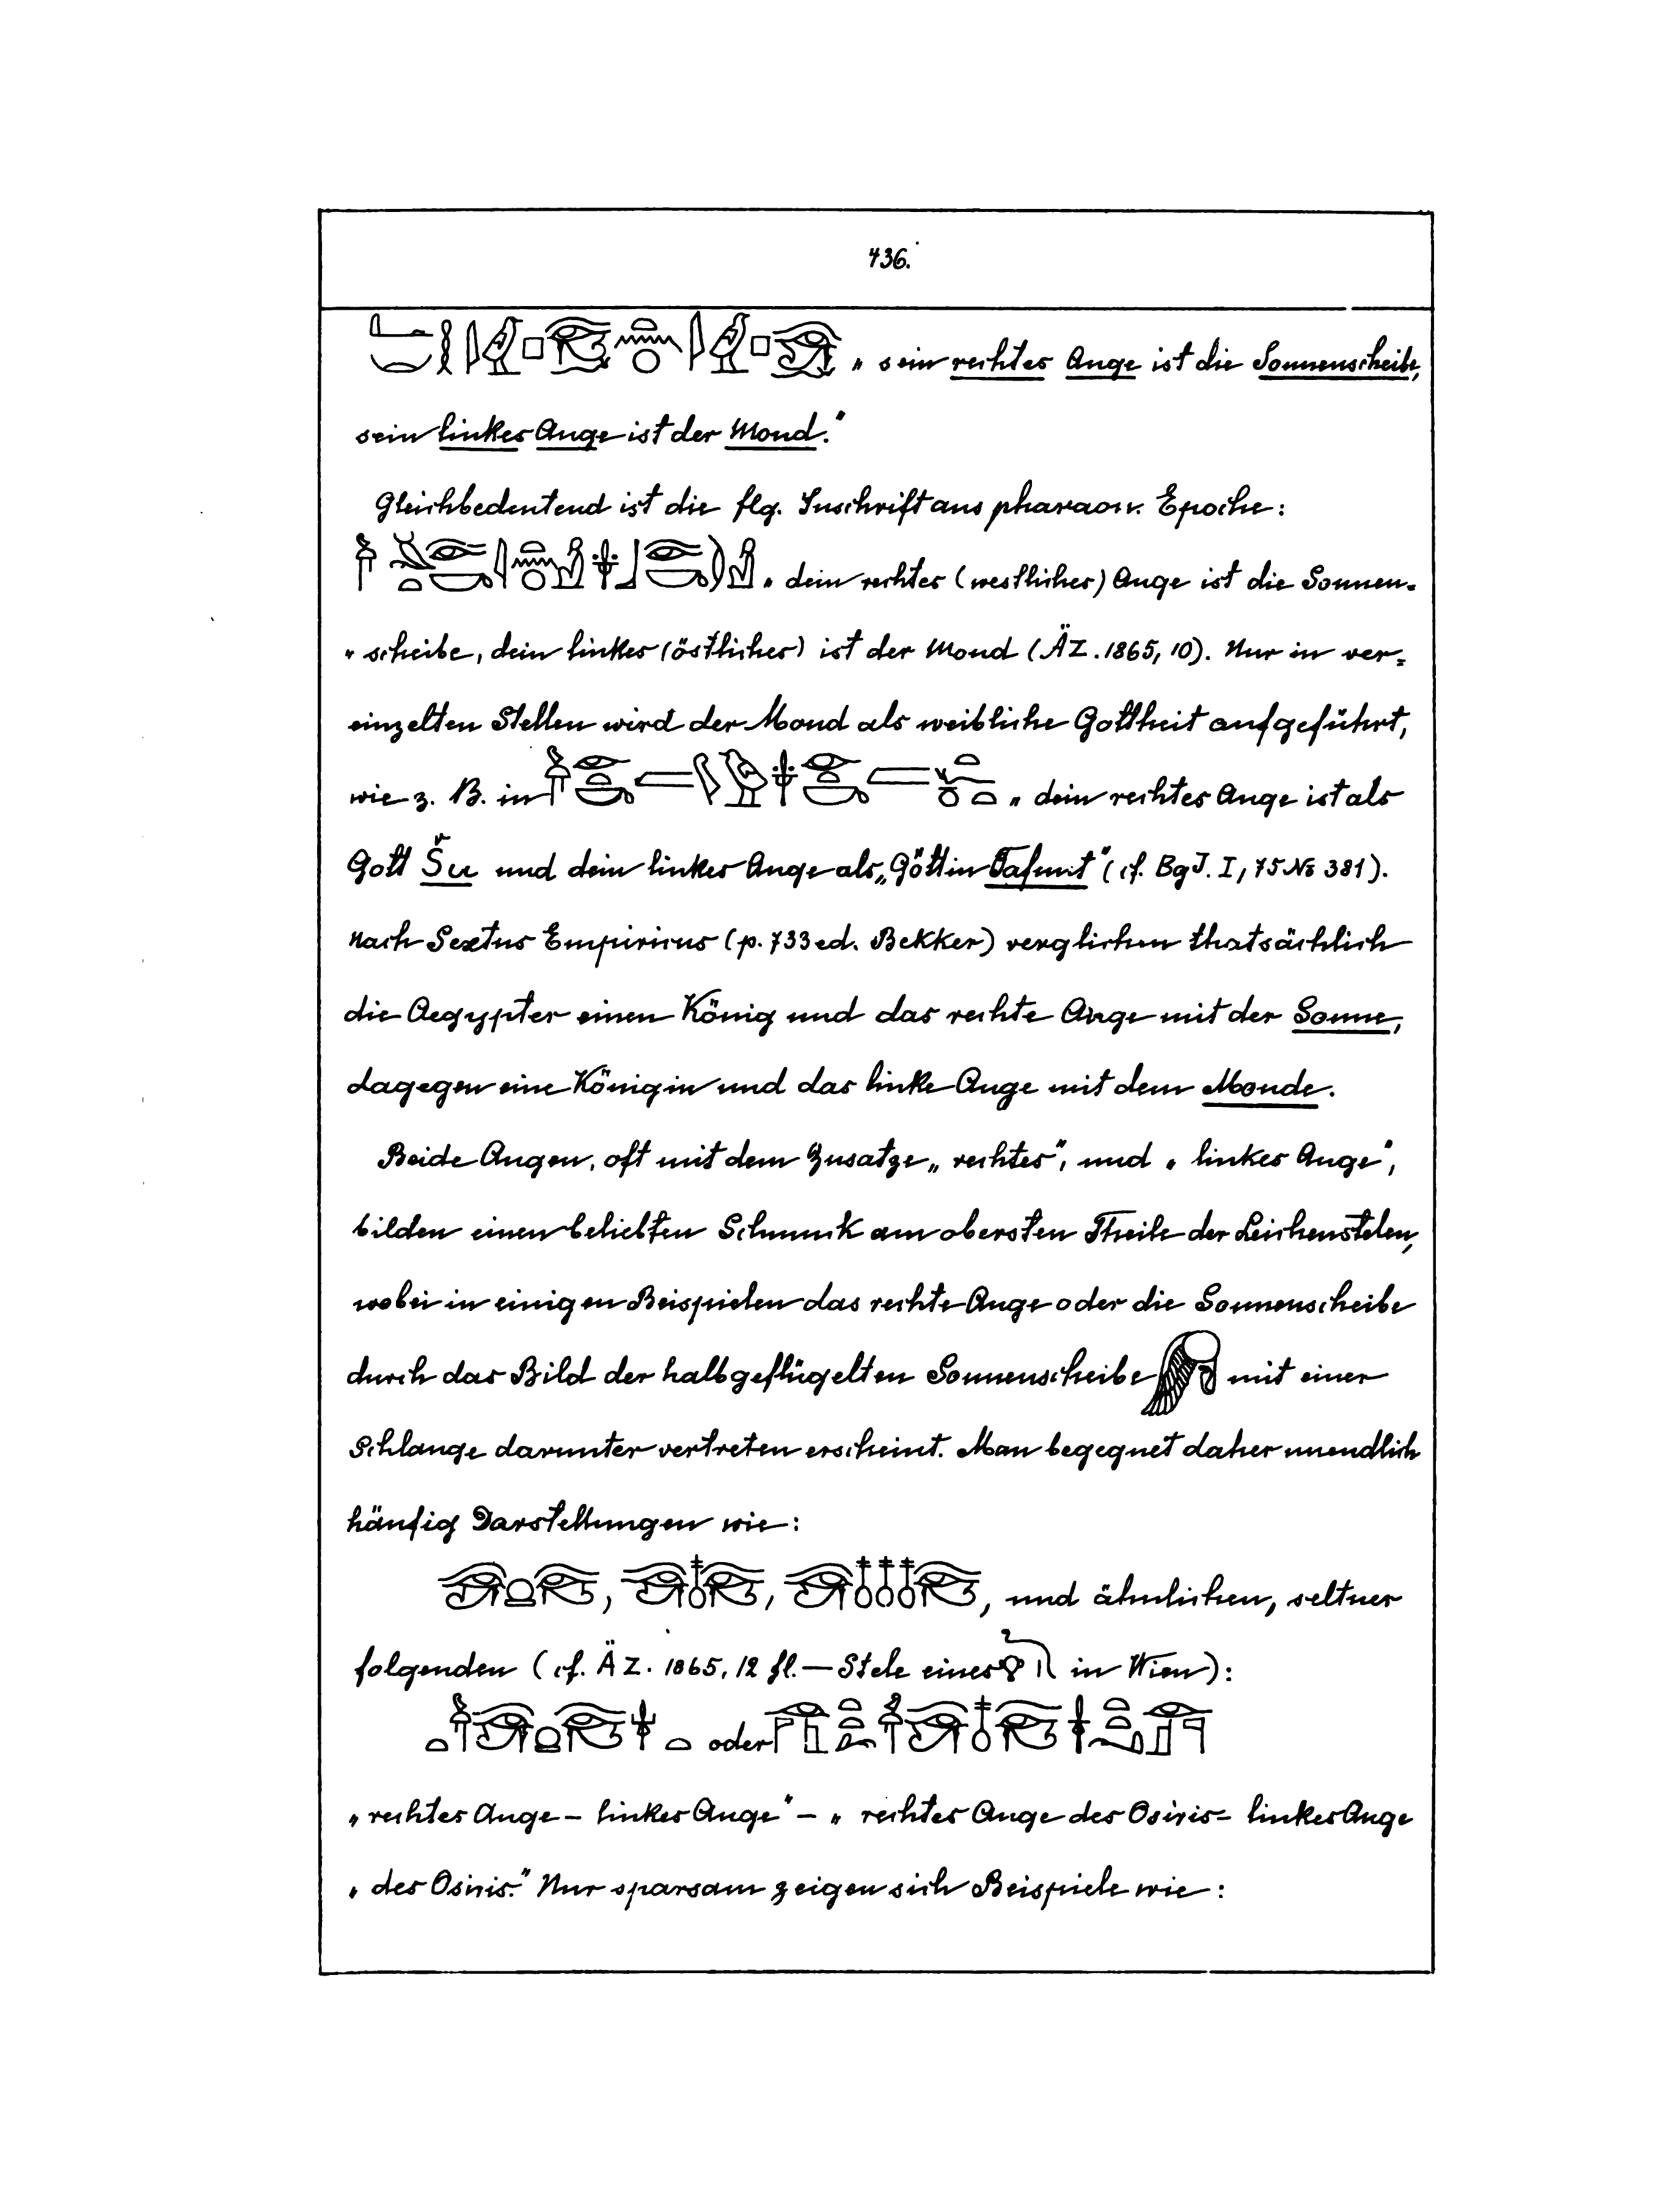 436.
„ sein rechtes Auge ist die Sonnenscheibe,
sein linkes Auge ist der Mond."
Gleichbedeutend ist die flg. Inschrift aus pharaon. Epoche:
„ dein rechtes (westliches) Auge ist die Sonnen-
„ scheibe, dein linkes (östliches) ist der Mond (ÄZ. 1865, 10). Nur in ver-
einzelten Stellen wird der Mond als weibliche Gottheit aufgeführt,
wie z. B. in „ dein rechtes Auge ist als
Gott Šu und dein linkes Auge als „Göttin Tafnut" (cf. Bg J. I, 75 No 381).
Nach Sextus Empiricus (p. 733 ed. Bekker) verglichen thatsächlich
die Aegypter einen König und das rechte Auge mit der Sonne,
dagegen eine Königin und das linke Auge mit dem Monde.
Beide Augen, oft mit dem Zusatze „ rechtes", und „ linkes Auge",
bilden einen beliebten Schmuck am obersten Theile der Leichenstelen,
wobei in einigen Beispielen das rechte Auge oder die Sonnenscheibe
durch das Bild der halbgeflügelten Sonnenscheibe mit einer
Schlange darunter vertreten erscheint. Man begegnet daher unendlich
häufig Darstellungen wie:
, , , und ähnlichen, seltner
folgenden (cf. ÄZ. 1865, 12 fl. — Stele eines in Wien):
oder
„ rechtes Auge – linkes Auge" – „ rechtes Auge des Osiris – linkes Auge
„ des Osiris." Nur sparsam zeigen sich Beispiele wie: